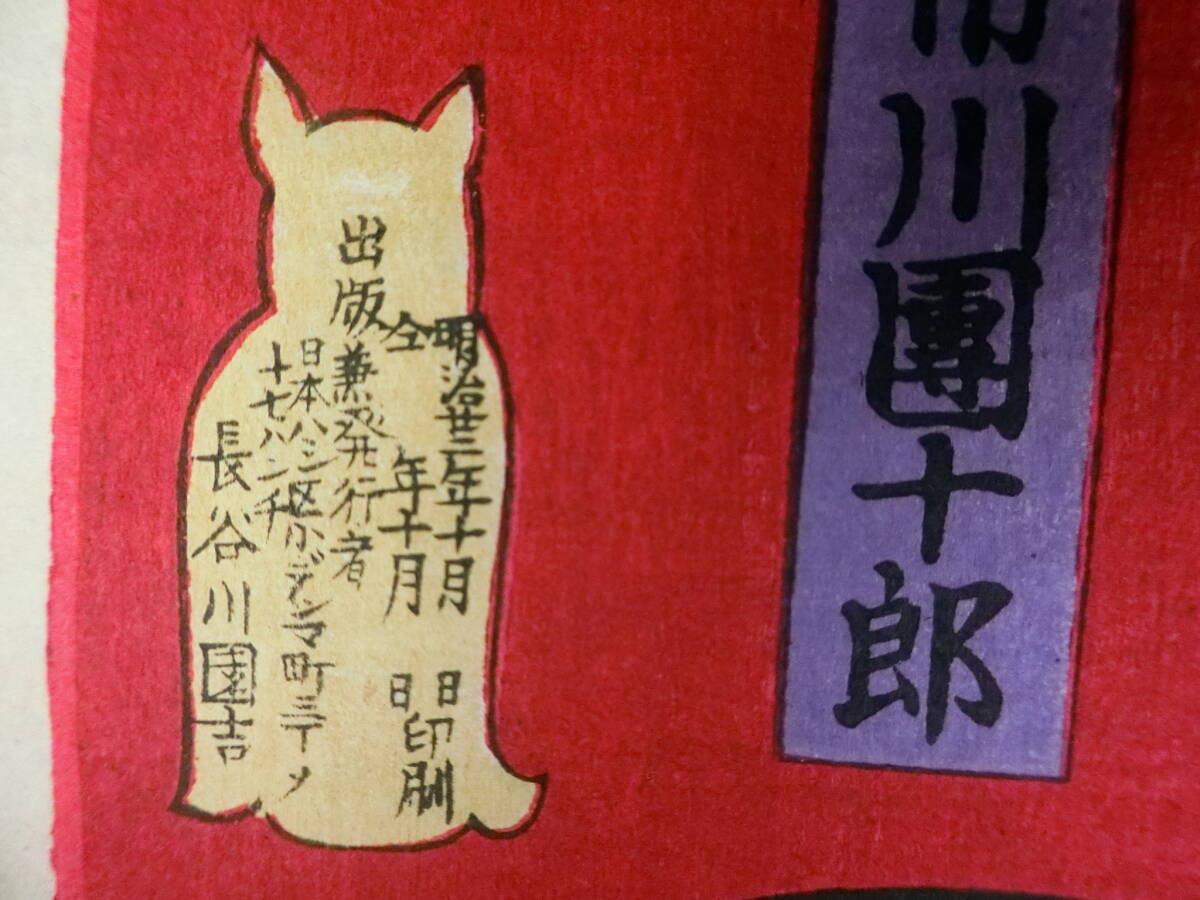 市川團十郎
明治廿三年十月　日印刷
仝　年十月　日
出版兼発行者
日本ハシ区小デンマ町三丁メ
十七バンチ
長谷川園吉